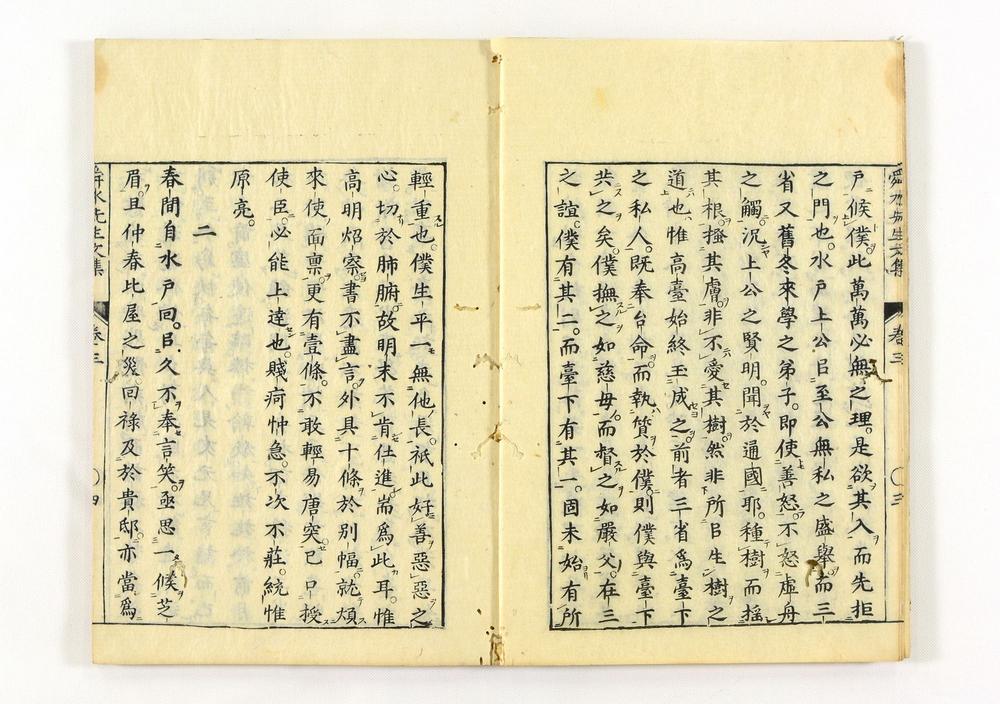 舜水先生文集 卷三 三
戶候僕。此萬萬必無之理。是欲其入而先拒
之門也。水戶上公以至公無私之盛舉。而三
省又舊冬來學之弟子。即使善怒。不怒虛舟
之觸。況上公之賢明。聞於通國耶。種樹而搖
其根。搔其膚。非不愛其樹。然非所以生樹之
道也。惟高臺始終玉成之。前者三省為臺下
之私人。既奉台命。而執贄於僕。則僕與臺下
共之矣。僕撫之如慈母。而督之如嚴父。在三
之誼。僕有其二。而臺下有其一。固未始有所
輕重也。僕生平一無他長。祇此好善惡惡之
心。切於肺腑。故明末不肯仕進。耑爲此耳。惟
高明炤察。書不盡言。外具十條於别幅。就煩
來使面稟。更有壹條。不敢輕易唐突。已口授
使臣。必能上達也。賤疴忡急。不次不莊。統惟
原亮。
二
春間自水戶回。以久不奉言笑。亟思一候芝
眉。且仲春比屋之災。回祿及於貴邸。亦當爲
舜水先生文集 卷三 四